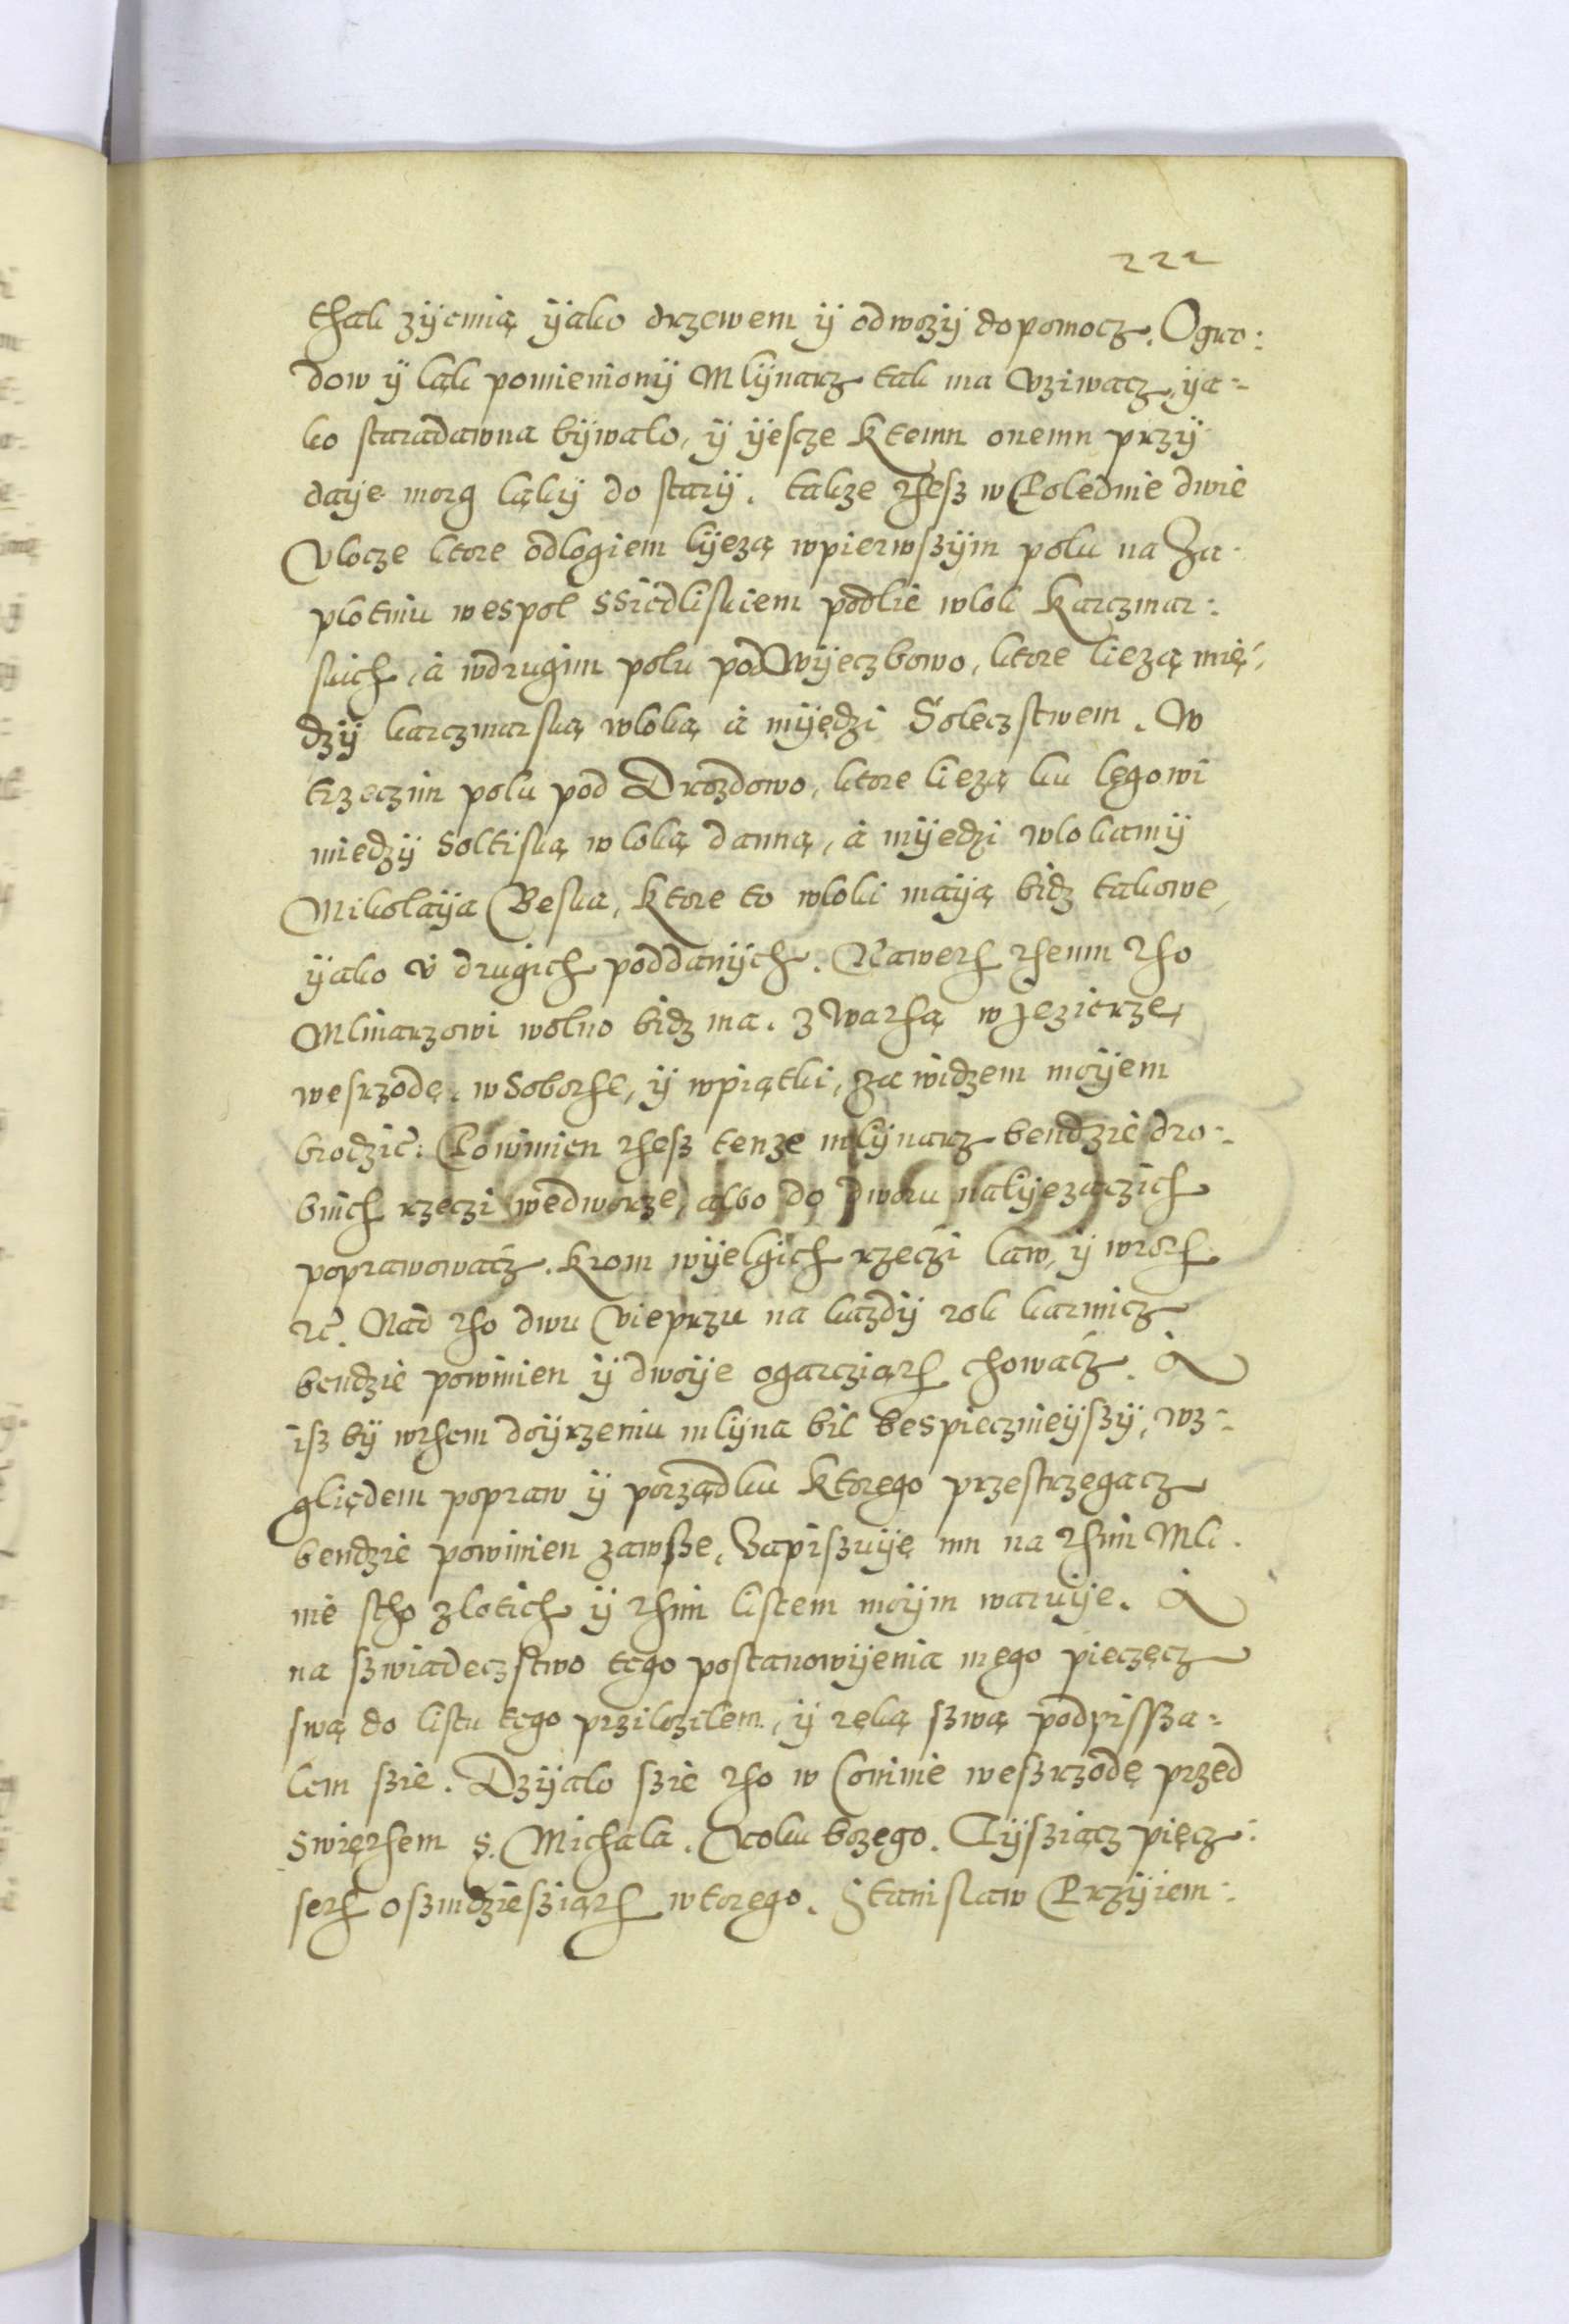 222
thak zÿemią ÿako drzewem ÿ odwozÿ dopomocz. Ogro:
dow ÿ łąk pomienionÿ Mlÿnarz tak ma vziwacz, ÿa-
ko staradawna bÿwało, ÿ ÿescze ktemu onemu przÿ
daÿe morg łąkÿ do starÿ. takze thesz w Polednie dwie
Vlocze ktore odlogiem lÿezą wpierwszÿm polu na Za-
plotniu wespoł ssiedliskiem podlie wlok Karczmar:
skich, à wdrugim polu pod Wÿeczbowo, ktore liezą mię:
dzÿ karczmarską wloką à mÿędzi Soleczstwem. W
trzeczim polu pod Drozdowo, ktore liezą ku lęgowi
miedzÿ Soltiską wloką danną, à mÿedzi wlokamÿ
Mikolaÿa Beska, Ktore to wloki maÿą bidz takowe,
ÿako v drugich poddanÿch. Nawerh themu tho
Mlinarzowi wolno bidz ma. z Warhą w Jezierze,
wesrzodę. w Sobothe, ÿ wpiątki, za widzem moÿem
brodzić: Powinien thesz tenze mlÿnarz bendzie dro:
bnich rzeczi wedworze, albo do dworu nalÿezączich
poprawowacz. krom wÿelgich rzeczi law, ÿ wroth
etc. Nad tho dwu vieprzu na kazdÿ rok karmicz
bendzie powinien ÿ dwoÿe ogarcziąth chowacz. A
isz bÿ wthem doÿrzeniu mlÿna bil bespiecznieÿszÿ, wz-
glięden popraw ÿ porządku Ktorego przestrzegacz
bendzie powinien zawsze, Zapiszuÿę mu na thim Mli-
nie sto zlotich ÿ thim listem moÿm waruÿe. A
na szwiadeczstwo tego postanowÿenia mego pieczęcz
swą do listu tego prziloziłem, ÿ ręką szwą podpissza-
lem szie. Dzÿalo szie tho w Coninie weszrzodę przed
Swięthem S. Michala. Roku bozego. Tÿsziącz pięcz:
seth oszmdziesziąth wtorego. Stanislaw Przÿiem: